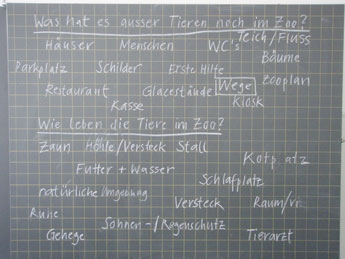 Was hat es ausser Tieren noch im Zoo?
Häuser Menschen WC's Teich/Fluss
Bäume
Parkplatz Schilder Erste Hilfe
Restaurant Glacestände Wege Zooplan
Kasse Kiosk
Wie leben die Tiere im Zoo?
Zaun Höhle/Versteck Stall
Kotp atz
Futter + Wasser
Schlafplatz
natürliche Umgebung
Versteck
Ruhe
Sonnen-/Regenschutz
Gehege Tierarzt